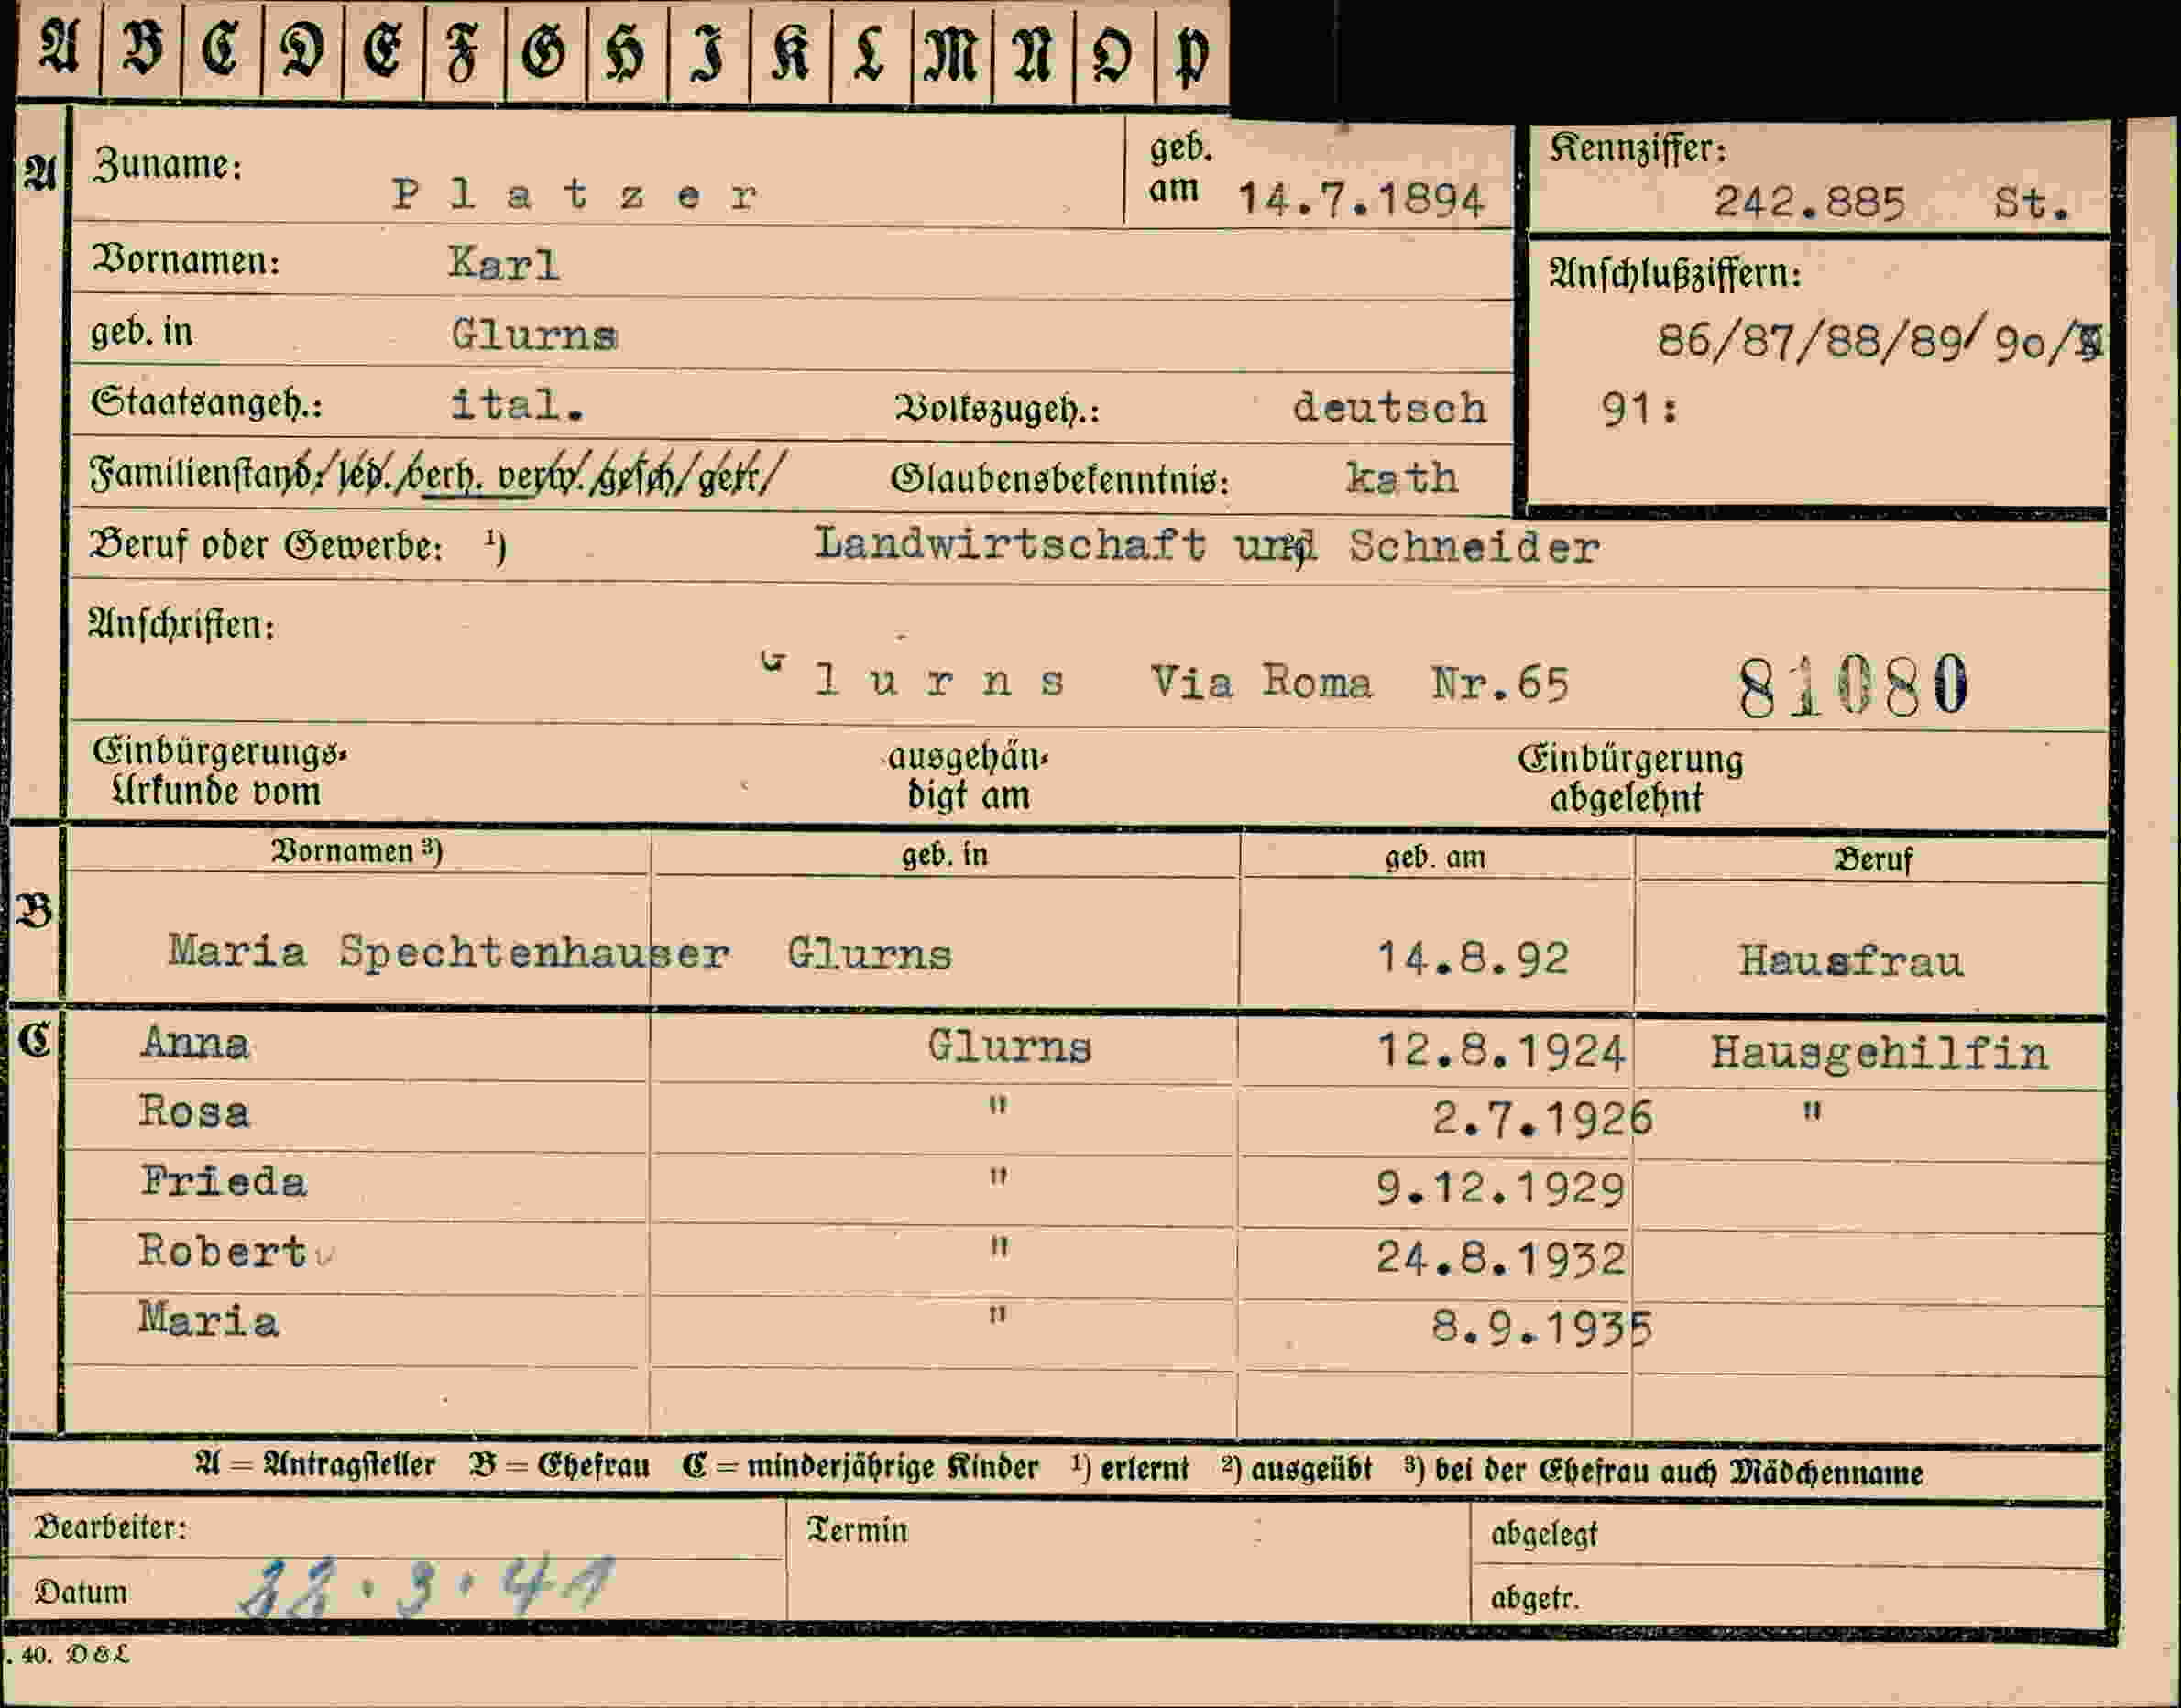 A B C D E F G H I K L M N O P
A Zuname: Platzer geb. am 14.7.1894 Kennziffer: 242.885 St.
Vornamen: Karl
Anschlußziffern:
geb. in Glurns 86/87/88/89/90/
Staatsangeh.: ital. Volkszugeh.: deutsch 91:
Familienstand: led. verh. verw. gesch/getr/ Glaubensbekenntnis: kath
Beruf oder Gewerbe: ¹) Landwirtschaft und Schneider
Anschriften:
Glurns Via Roma Nr.65 81080
Einbürgerungs- ausgehän- Einbürgerung
Urkunde vom digt am abgelehnt
Vornamen ³) geb. in geb. am Beruf
B
Maria Spechtenhauser Glurns 14.8.92 Hausfrau
C Anna Glurns 12.8.1924 Hausgehilfin
Rosa " 2.7.1926 "
Frieda " 9.12.1929
Robert " 24.8.1932
Maria " 8.9.1935
A = Antragsteller B = Ehefrau C = minderjährige Kinder ¹) erlernt ²) ausgeübt ³) bei der Ehefrau auch Mädchenname
Bearbeiter: Termin abgelegt
Datum .3.41 abgetr.
. 40. D&L